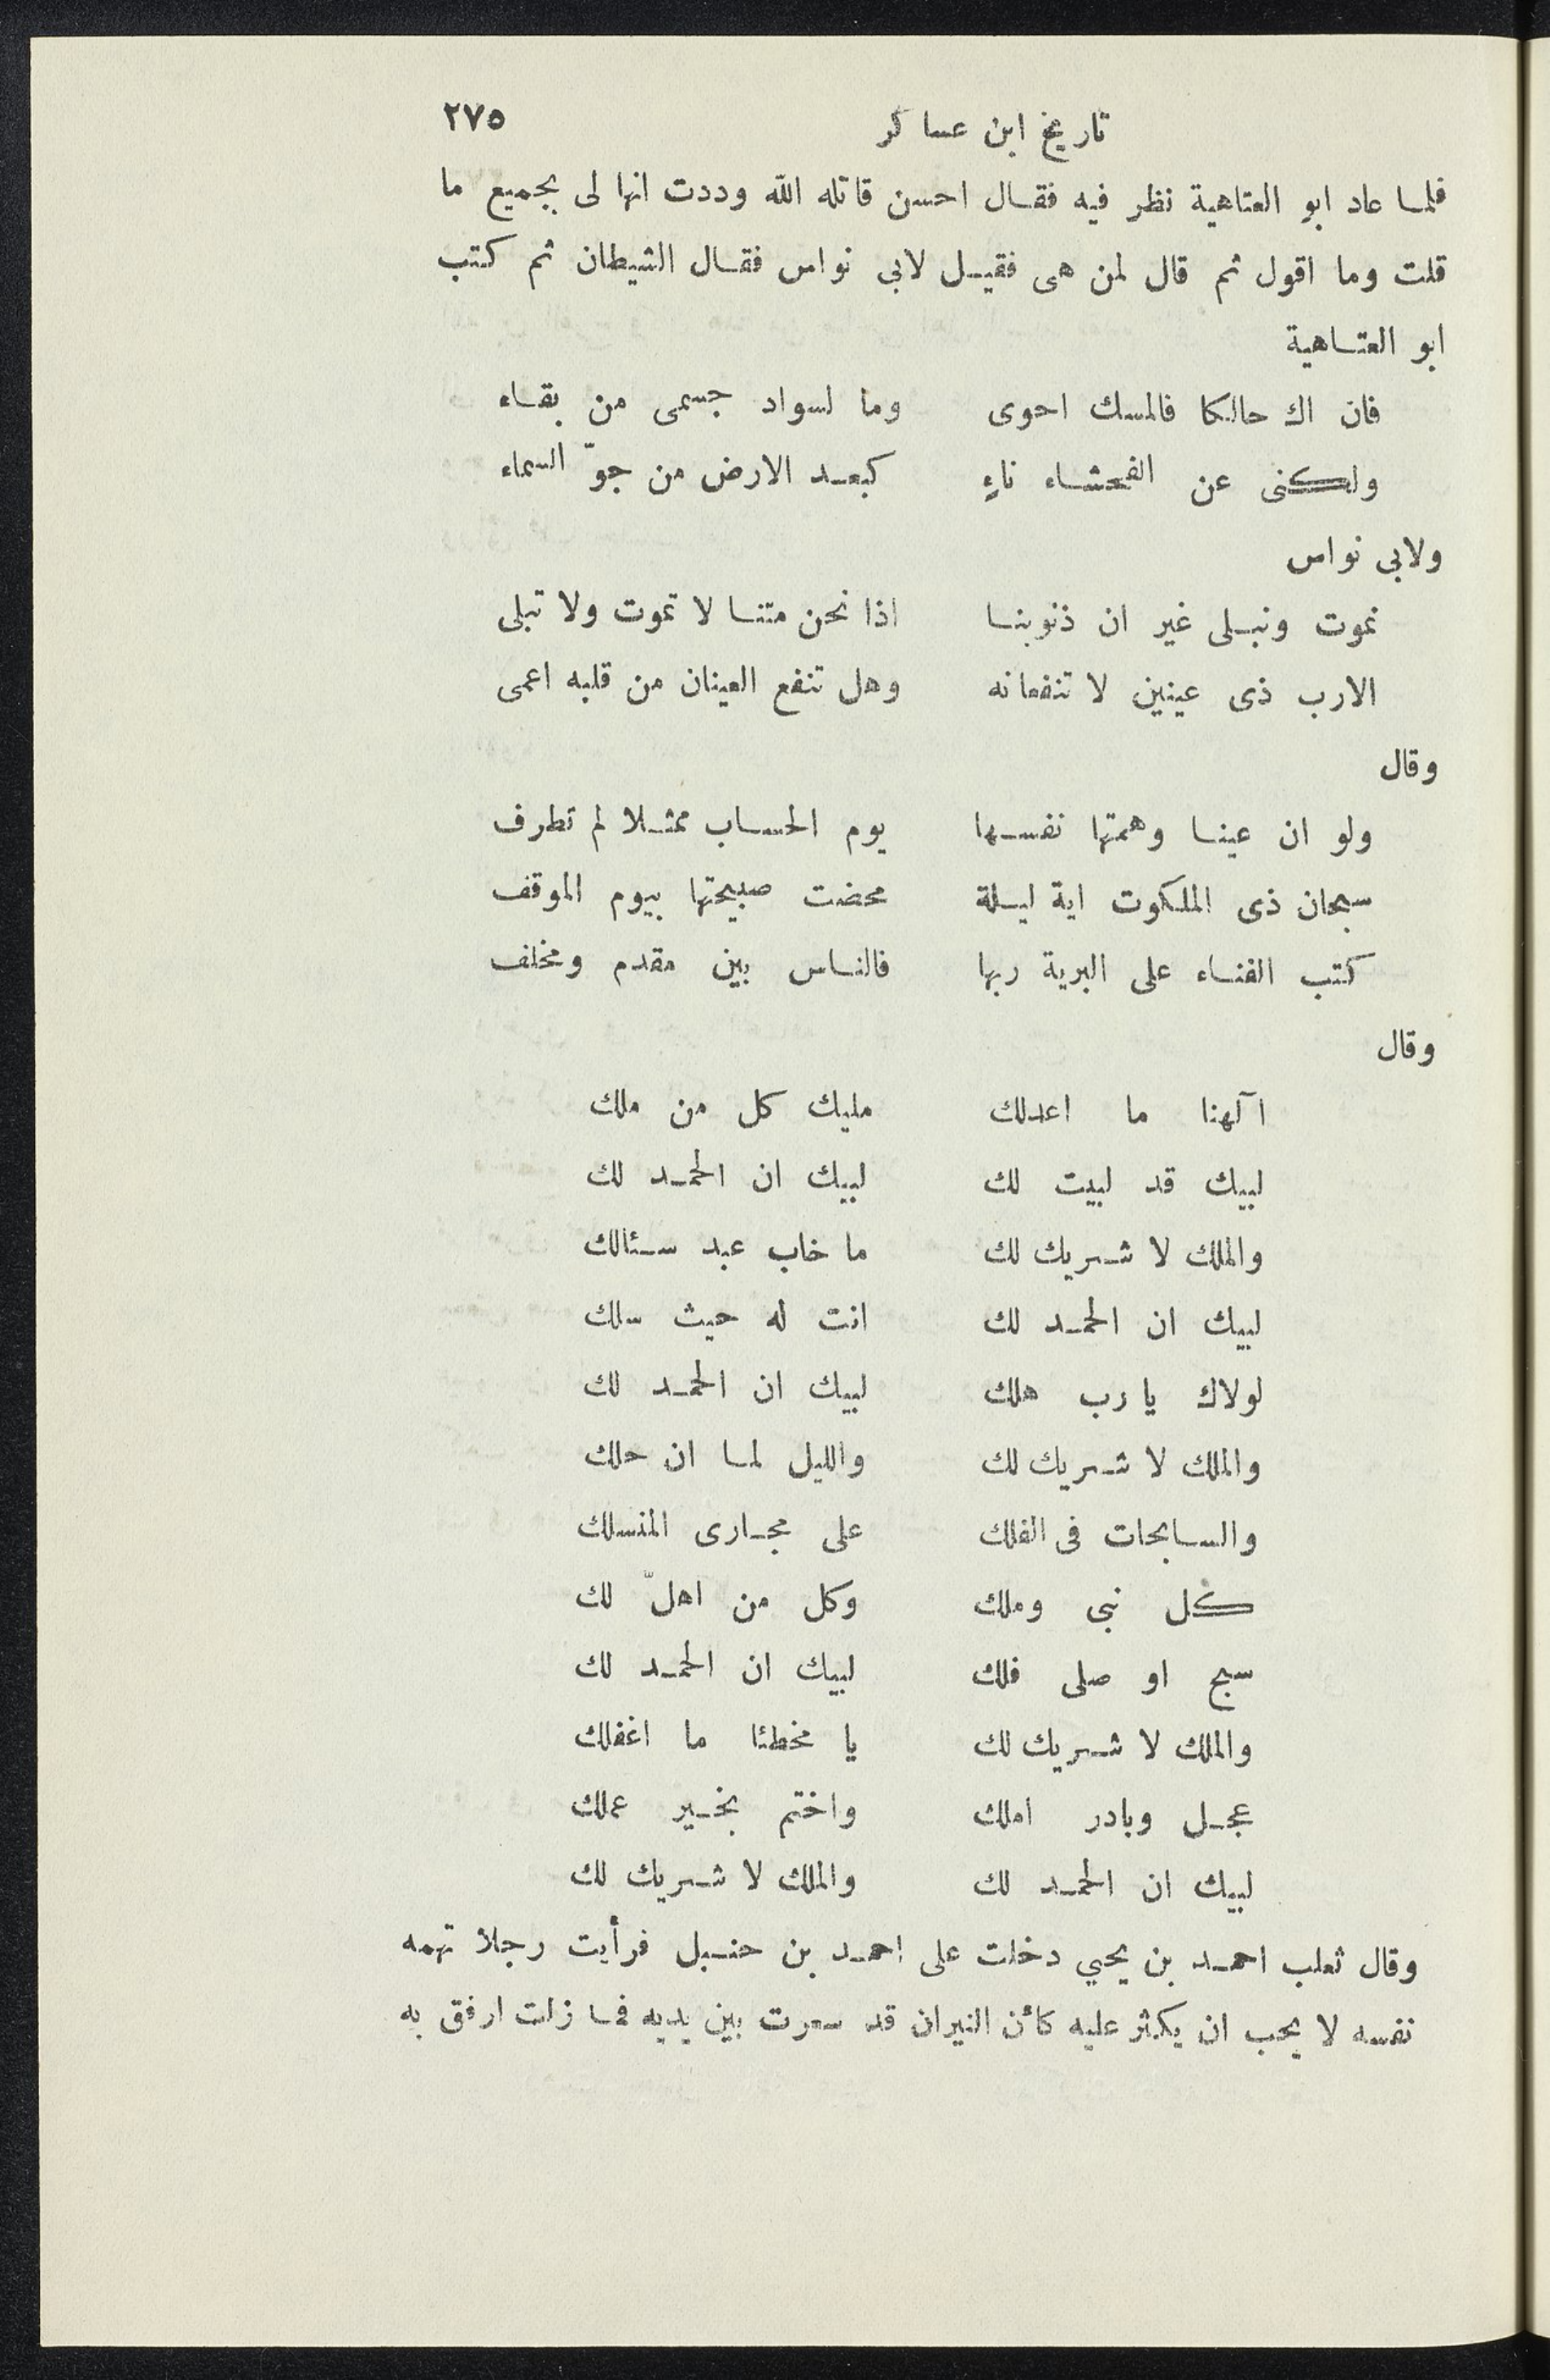 تاريخ ابن عساكر ٢٧٥
فلما عاد ابو العتاهية نظر فيه فقال احسن قاتله الله وددت انها لى بجميع ما
قلت وما اقول ثم قال لمن هى فقيل لابى نواس فقال الشيطان ثم كتب
ابو العتاهية
فان اك حالكا فالمسك احوى وما لسواد جسمى من بقاء
ولكنى عن الفحشاء ناءٍ كبعد الارض من جوّ السماء
ولابى نواس
نموت ونبلى غير ان ذنوبنا اذا نحن متنا لا تموت ولا تبلى
الارب ذى عينين لا تنفعانه وهل تنفع العينان من قلبه اعمى
وقال
ولو ان عينا وهمتها نفسها يوم الحساب ممثلا لم تطرف
سبحان ذى الملكوت اية ليلة محضت صبيحتها بيوم الموقف
كتب الفناء على البرية ربها فالناس بين مقدم ومخلف
وقال
اآلهنا ما اعدلك مليك كل من ملك
لبيك قد لبيت لك لبيك ان الحمد لك
والملك لا شريك لك ما خاب عبد سئالك
لبيك ان الحمد لك انت له حيث سلك
لولاك يا رب هلك لبيك ان الحمد لك
والملك لا شريك لك والليل لما ان حلك
والسابحات فى الفلك على مجارى المنسلك
كل نبى وملك وكل من اهلّ لك
سبح او صلى فلك لبيك ان الحمد لك
والملك لا شريك لك يا مخطئا ما اغفلك
عجل وبادر املك واختم بخير عملك
لبيك ان الحمد لك والملك لا شريك لك
وقال ثعلب احمد بن يحيي دخلت على احمد بن حنبل فرأيت رجلا تهمه
نفسه لا يحب ان يكثر عليه كأن النيران قد سعرت بين يديه فما زلت ارفق به